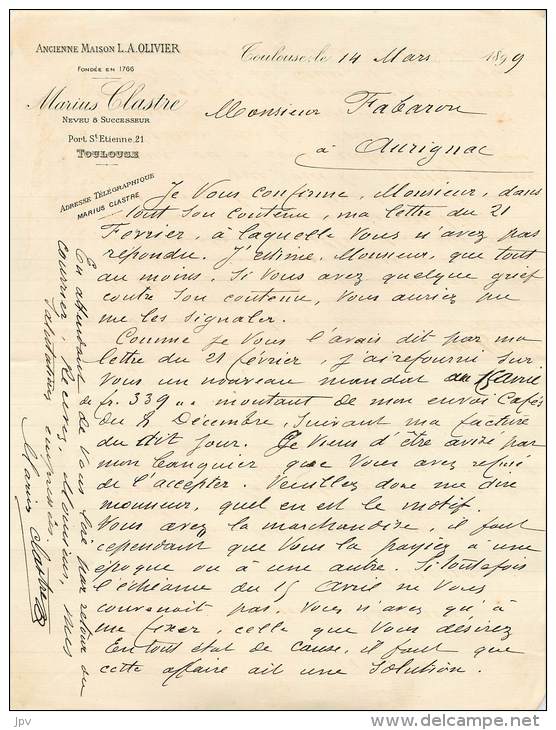 ANCIENNE MAISON L.A. OLIVIER
FONDÉE EN 1766
Marius Clastre
NEVEU & SUCCESSEUR
Port St Etienne, 21
TOULOUSE
ADRESSE TÉLÉGRAPHIQUE
MARIUS CLASTRE
Toulouse, le 14 Mars 1899
Monsieur Fabarou
à Aurignac
Je Vous confirme, Monsieur, dans
tout son contenu, ma lettre du 21
Février, à laquelle Vous n'avez pas
répondu. J'estime, Monsieur, que tout
au moins, si Vous avez quelque grief
contre son contenu, Vous auriez pu
me les signaler.
Comme je Vous l'avais dit par ma
lettre du 21 février, j'ai refourni sur
Vous un nouveau mandat au 15 Avril
de fr. 339 " montant de mon envoi Cafés
du 2 Décembre, suivant ma facture
du dit jour. Je viens d'être avisé par
mon banquier que Vous avez refusé
de l'accepter. Veuillez donc me dire
monsieur, quel en est le motif.
Vous avez la marchandise, il faut
cependant que Vous la payiez à une
époque ou à une autre. Si toutefois
l'échéance du 15 Avril ne Vous
convenait pas, Vous n'avez qu'à
me fixer, celle que Vous désirez
En tout état de cause, il faut que
cette affaire ait une solution.
En attendant de Vous lire par retour du
courrier, Recevez, Monsieur, mes
salutations empressées.
Marius Clastre
JPV
www.delcampe.net